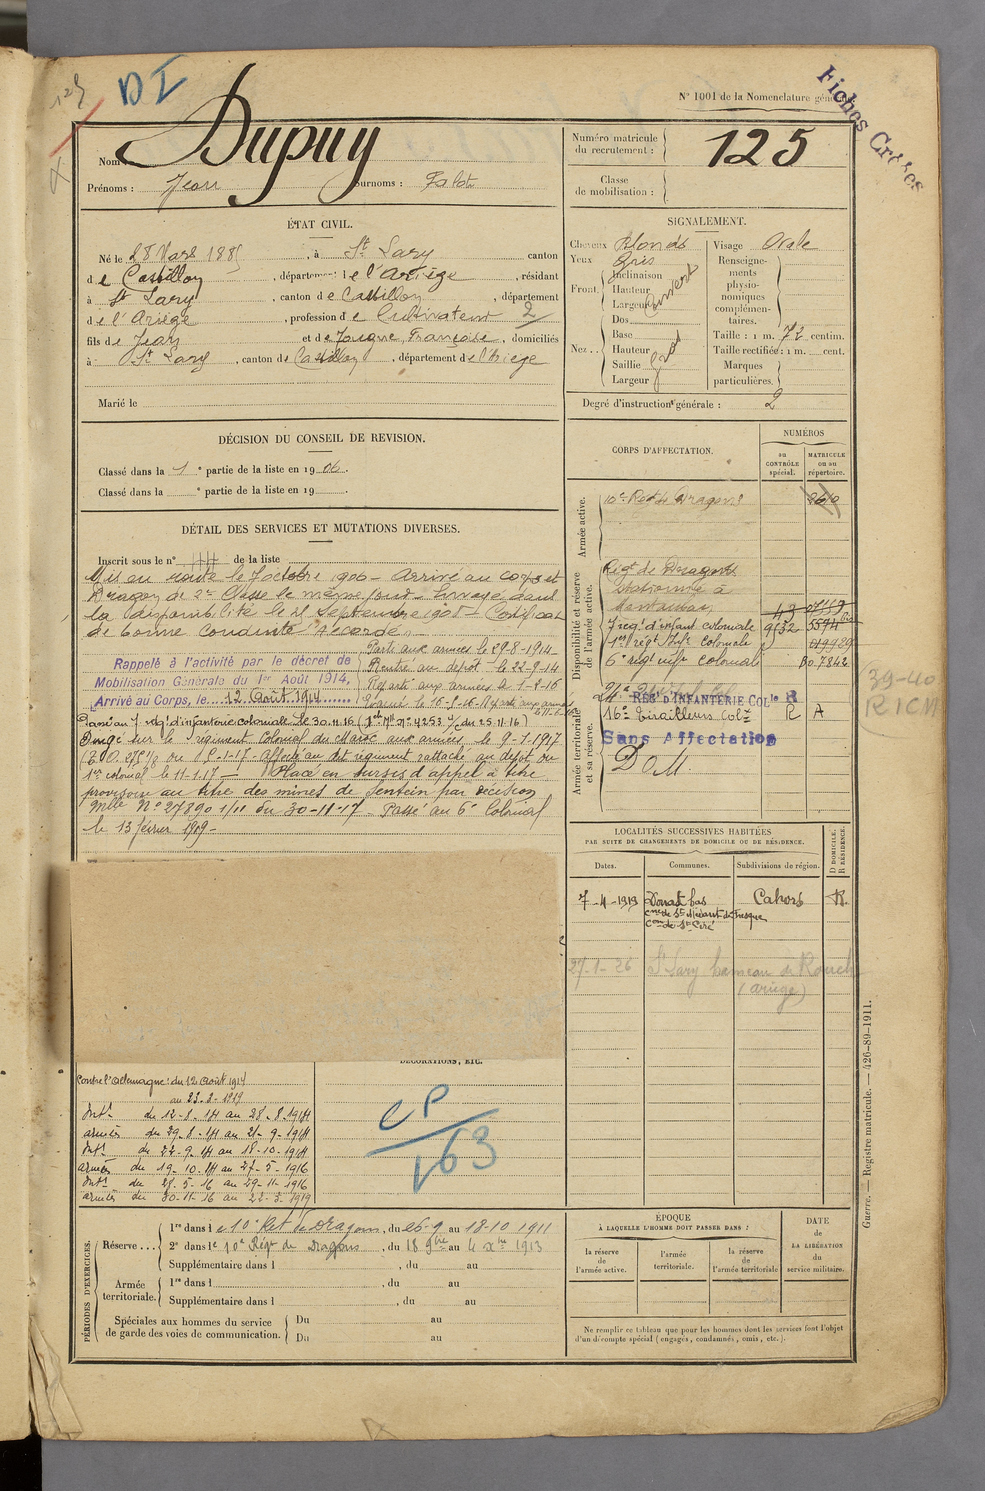 125
DI
N° 1001 de la Nomenclature géné
Fiches Créées
Nom Dupuy
Prénoms : Jean Surnoms : Falot
Numéro matricule du recrutement : 125
Classe de mobilisation :
ÉTAT CIVIL.
Né le 28 Mars 1885, à St Lary canton
de Castillon, département de l'Ariège, résidant
à St Lary, canton de Castillon, département
de l'Ariège, profession de Cultivateur 2
fils de Jean et de Jougne, Françoise, domiciliés
à St Lary, canton de Castillon, département de l'Ariège
Marié le
SIGNALEMENT.
Cheveux Blonds
Yeux Gris
Front. Inclinaison
Hauteur
Largeur Couvert
Nez .. Dos
Base
Hauteur
Saillie
Largeur
Visage Ovale
Renseignements physionomiques complémentaires.
Taille : 1 m. 72 centim.
Taille rectifiée : 1 m. cent.
Marques particulières.
Degré d'instruction générale : 2
DÉCISION DU CONSEIL DE REVISION.
Classé dans la 1e partie de la liste en 1906.
Classé dans la e partie de la liste en 19 .
DÉTAIL DES SERVICES ET MUTATIONS DIVERSES.
Inscrit sous le n° de la liste
Mis en route le 7 octobre 1906 – Arrivé au corps et
Dragon de 2e Classe le même jour – Envoyé dans
la disponibilité le Septembre 1908 – Certificat
de bonne conduite "Accordé" –
Rappelé à l'activité par le décret de
Mobilisation Générale du 1er Août 1914,
Arrivé au Corps, le 12 Août 1914
Parti aux armées le 29-8-1914
Rentré au dépôt le 22-9-14
Reparti aux armées
Passé au 7e rég. d'infanterie coloniale le 30.11.16 (du 25.11.16)
Dirigé sur le régiment Colonial du Maroc aux armées le 9-1-1917
affecté au dit régiment rattaché au dépôt du
1er colonial le 11-1-17 – Placé en sursis d'appel à titre
provisoire au titre des mines de Sentein par décision
Mlle N° 27890 1/11 du 30-11-17 – Passé au 6e Colonial
le 13 février 1919 –
CORPS D'AFFECTATION.
NUMÉROS
au CONTRÔLE spécial.
MATRICULE ou au répertoire.
Armée active.
10e Regt de Dragons
Disponibilité et réserve de l'armée active.
Régt de Dragons
stationné à
Montauban
7e reg. d'infant coloniale 9532 5594
1er régt Inf. coloniale
6e régt inf. colonial 7842
Armée territoriale et sa réserve.
RÉG D'INFANTERIE COLle R
16e Tirailleurs Colx R A
Sans Affectation
DOM.
39-40
RICM
LOCALITÉS SUCCESSIVES HABITÉES
PAR SUITE DE CHANGEMENTS DE DOMICILE OU DE RÉSIDENCE.
Dates. Communes. Subdivisions de région. D DOMICILE. R RÉSIDENCE.
7-4-1919 bas Cahors R.
cne de St Médard de Presque
con de St Céré
27-1-26 St Lary hameau de Rouch
(ariège)
DÉCORATIONS, ETC.
CP
163
Contre l'Allemagne : du 12 Août 1914
au 23-3-1919
Intr du 12-8-14 au 28-8-1914
armées du 29-8-14 au 21-9-1914
Intr du 22-9-14 au 18-10-1914
armées du 19-10-14 au 27-5-1916
Intr du 28-5-16 au 29-11-1916
armées du 30-11-16 au 22-3-1919
PÉRIODES D'EXERCICES
Réserve ... 1re dans le 10e Rgt de Dragons, du 26-9 au 18-10 1911
2e dans le 10e Régt de Dragons, du 18 9bre au 4 Xbre 1913
Supplémentaire dans l , du au
Armée territoriale. 1re dans l , du au
Supplémentaire dans l , du au
Spéciales aux hommes du service de garde des voies de communication. Du au
Du au
ÉPOQUE
À LAQUELLE L'HOMME DOIT PASSER DANS :
la réserve de l'armée active.
l'armée territoriale.
la réserve de l'armée territoriale
DATE de LA LIBÉRATION du service militaire.
Ne remplir ce tableau que pour les hommes dont les services font l'objet
d'un décompte spécial (engagés, condamnés, omis, etc.).
Guerre. — Registre matricule. — 426-89-1911.